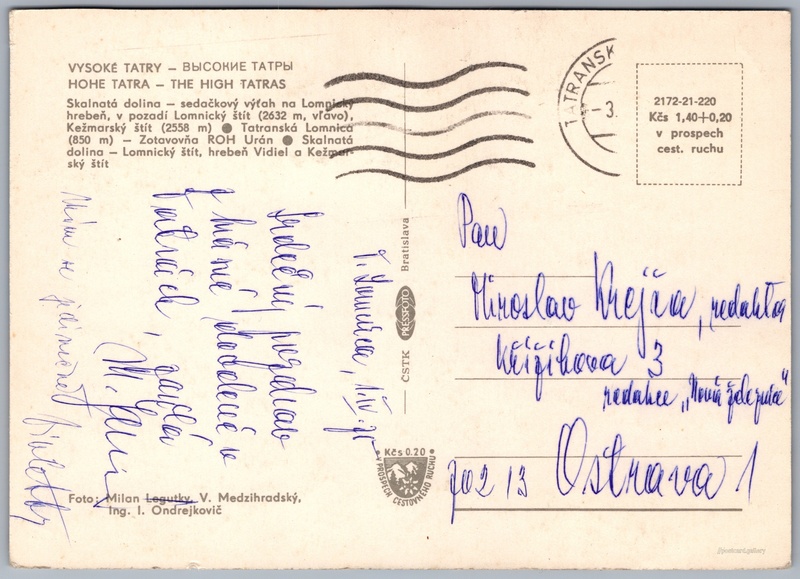 VYSOKÉ TATRY – ВЫСОКИЕ ТАТРЫ
HOHE TATRA – THE HIGH TATRAS
Skalnatá dolina – sedačkový výťah na Lomnický
hrebeň, v pozadí Lomnický štít (2632 m, vľavo),
Kežmarský štít (2558 m) ● Tatranská Lomnica
(850 m) – Zotavovňa ROH Urán ● Skalnatá
dolina – Lomnický štít, hrebeň Vidiel a Kežmar-
ský štít
TATRANSK
3.
2172-21-220
Kčs 1,40+0,20
v prospech
cest. ruchu
T. Lomnica, 1.IV.
Srdečný pozdrav
z
Tatrách,
M.
Pan
Miroslav Krejča, redaktor
Křižíkova 3
redakce
702 13 Ostrava 1
ČSTK PRESSFOTO Bratislava
Kčs 0.20
V PROSPECH CESTOVNÉHO RUCHU
Foto: Milan Legutky, V. Medzihradský,
Ing. I. Ondrejkovič